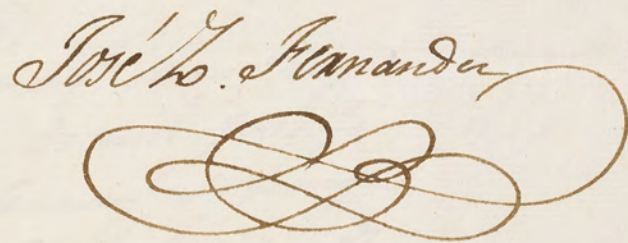 José Z. Fernandez